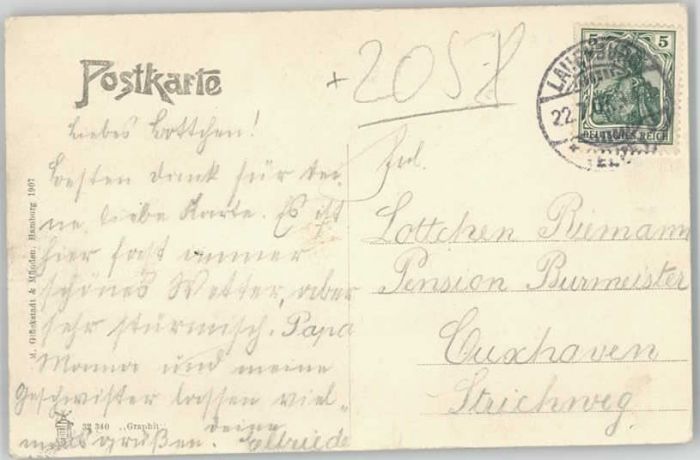 Postkarte
+ 2058
5 5
LAUENBURG
22.7.
DEUTSCHES REICH
Liebes Lottchen!
Besten dank für dei-
ne liebe Karte. Es ist
hier fast immer
schönes Wetter, aber
sehr stürmisch. Papa
Mama und meine
Geschwister lassen viel-
mals grüßen. deine
Elfriede
Frl.
Lottchen Riemann
Pension Burmeister
Cuxhaven
Strichweg
M. Glückstadt & Münden, Hamburg 1907
32 340 „Graphit"